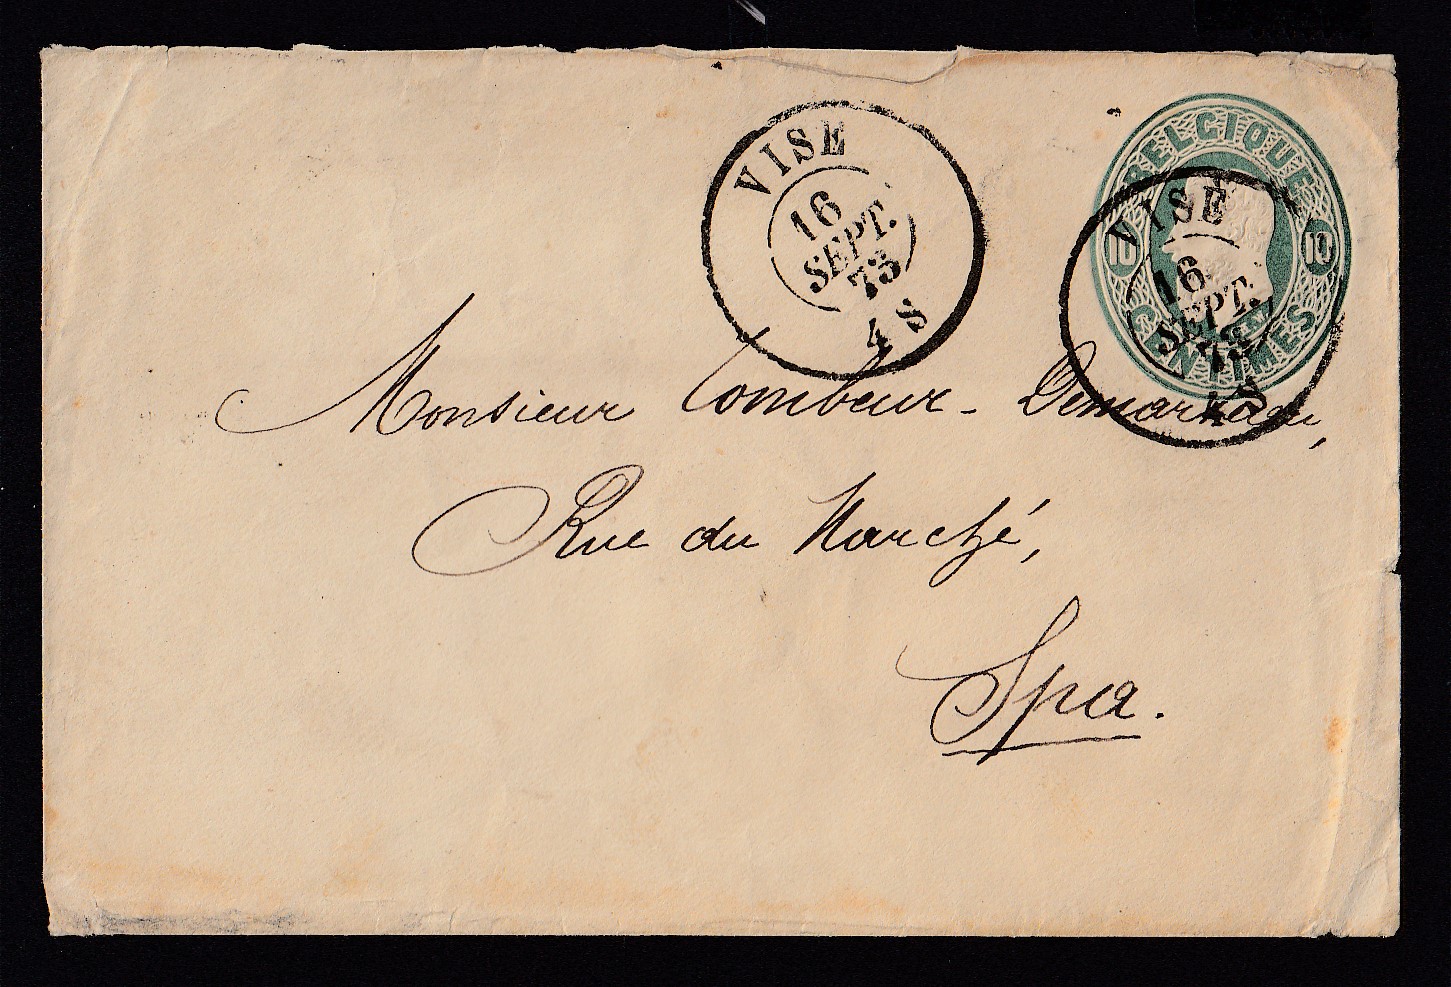 VISE
16
SEPT.
73
4 S
BELGIQUE
10 10
CENTIMES
VISE
16
SEPT.
73
4 S
Monsieur Lombeur-Demarteau,
Rue du Marché,
Spa.